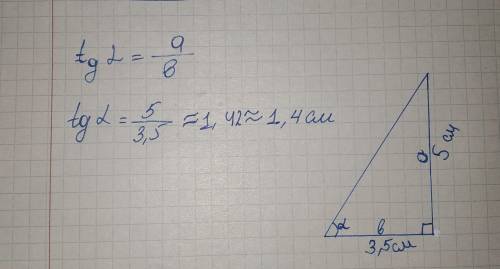 tg α = a/в
tg α = 5/3,5 ≈ 1,42 ≈ 1,4 см
a
5 см
α
в
3,5 см